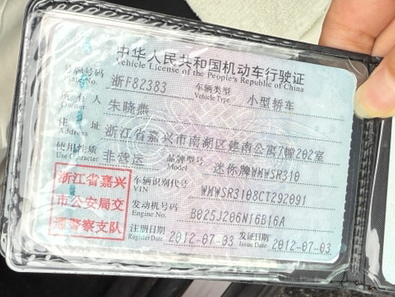 中华人民共和国机动车行驶证
Vehicle License of the People's Republic of China
号牌号码 浙F82383 车辆类型 小型轿车
Plate No. Vehicle Type
所有人 朱晓燕
Owner
住址 浙江省嘉兴市南湖区 7幢202室
Address
使用性质 非营运 品牌型号 迷你牌WMWSR310
Use Character Model
浙江省嘉兴 车辆识别代号 WMWSR3108CT292091
市公安局交 VIN
通警察支队 发动机号码 B025J206N16B16A
Engine No.
注册日期 2012-07-03 发证日期 2012-07-03
Register Date Issue Date